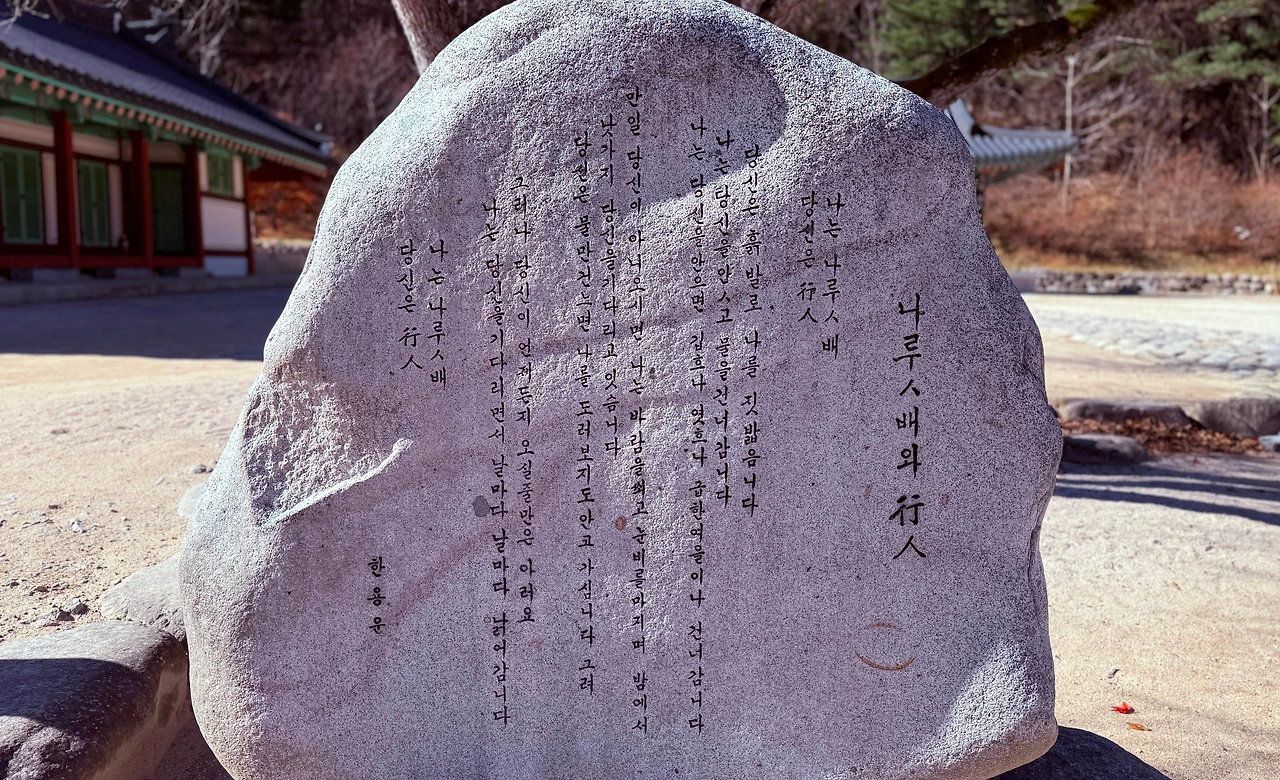 나루ㅅ배와 行人
나는 나루ㅅ배
당신은 行人
당신은 흙발로 나를 짓밟음니다
나는 당신을안ㅅ고 물을건너감니다
나는 당신을안으면 깁흐나 엿흐나 급한여울이나 건너감니다
만일 당신이 아니오시면 나는 바람을쐬고 눈비를마지며 밤에서
낫가지 당신을기다리고 잇슴니다
당신은 물만건느면 나를 도러보지도안코 가심니다 그려
그러나 당신이 언제든지 오실줄만은 아러요
나는 당신을기다리면서 날마다 날마다 낡어감니다
나는 나루ㅅ배
당신은 行人
한용운